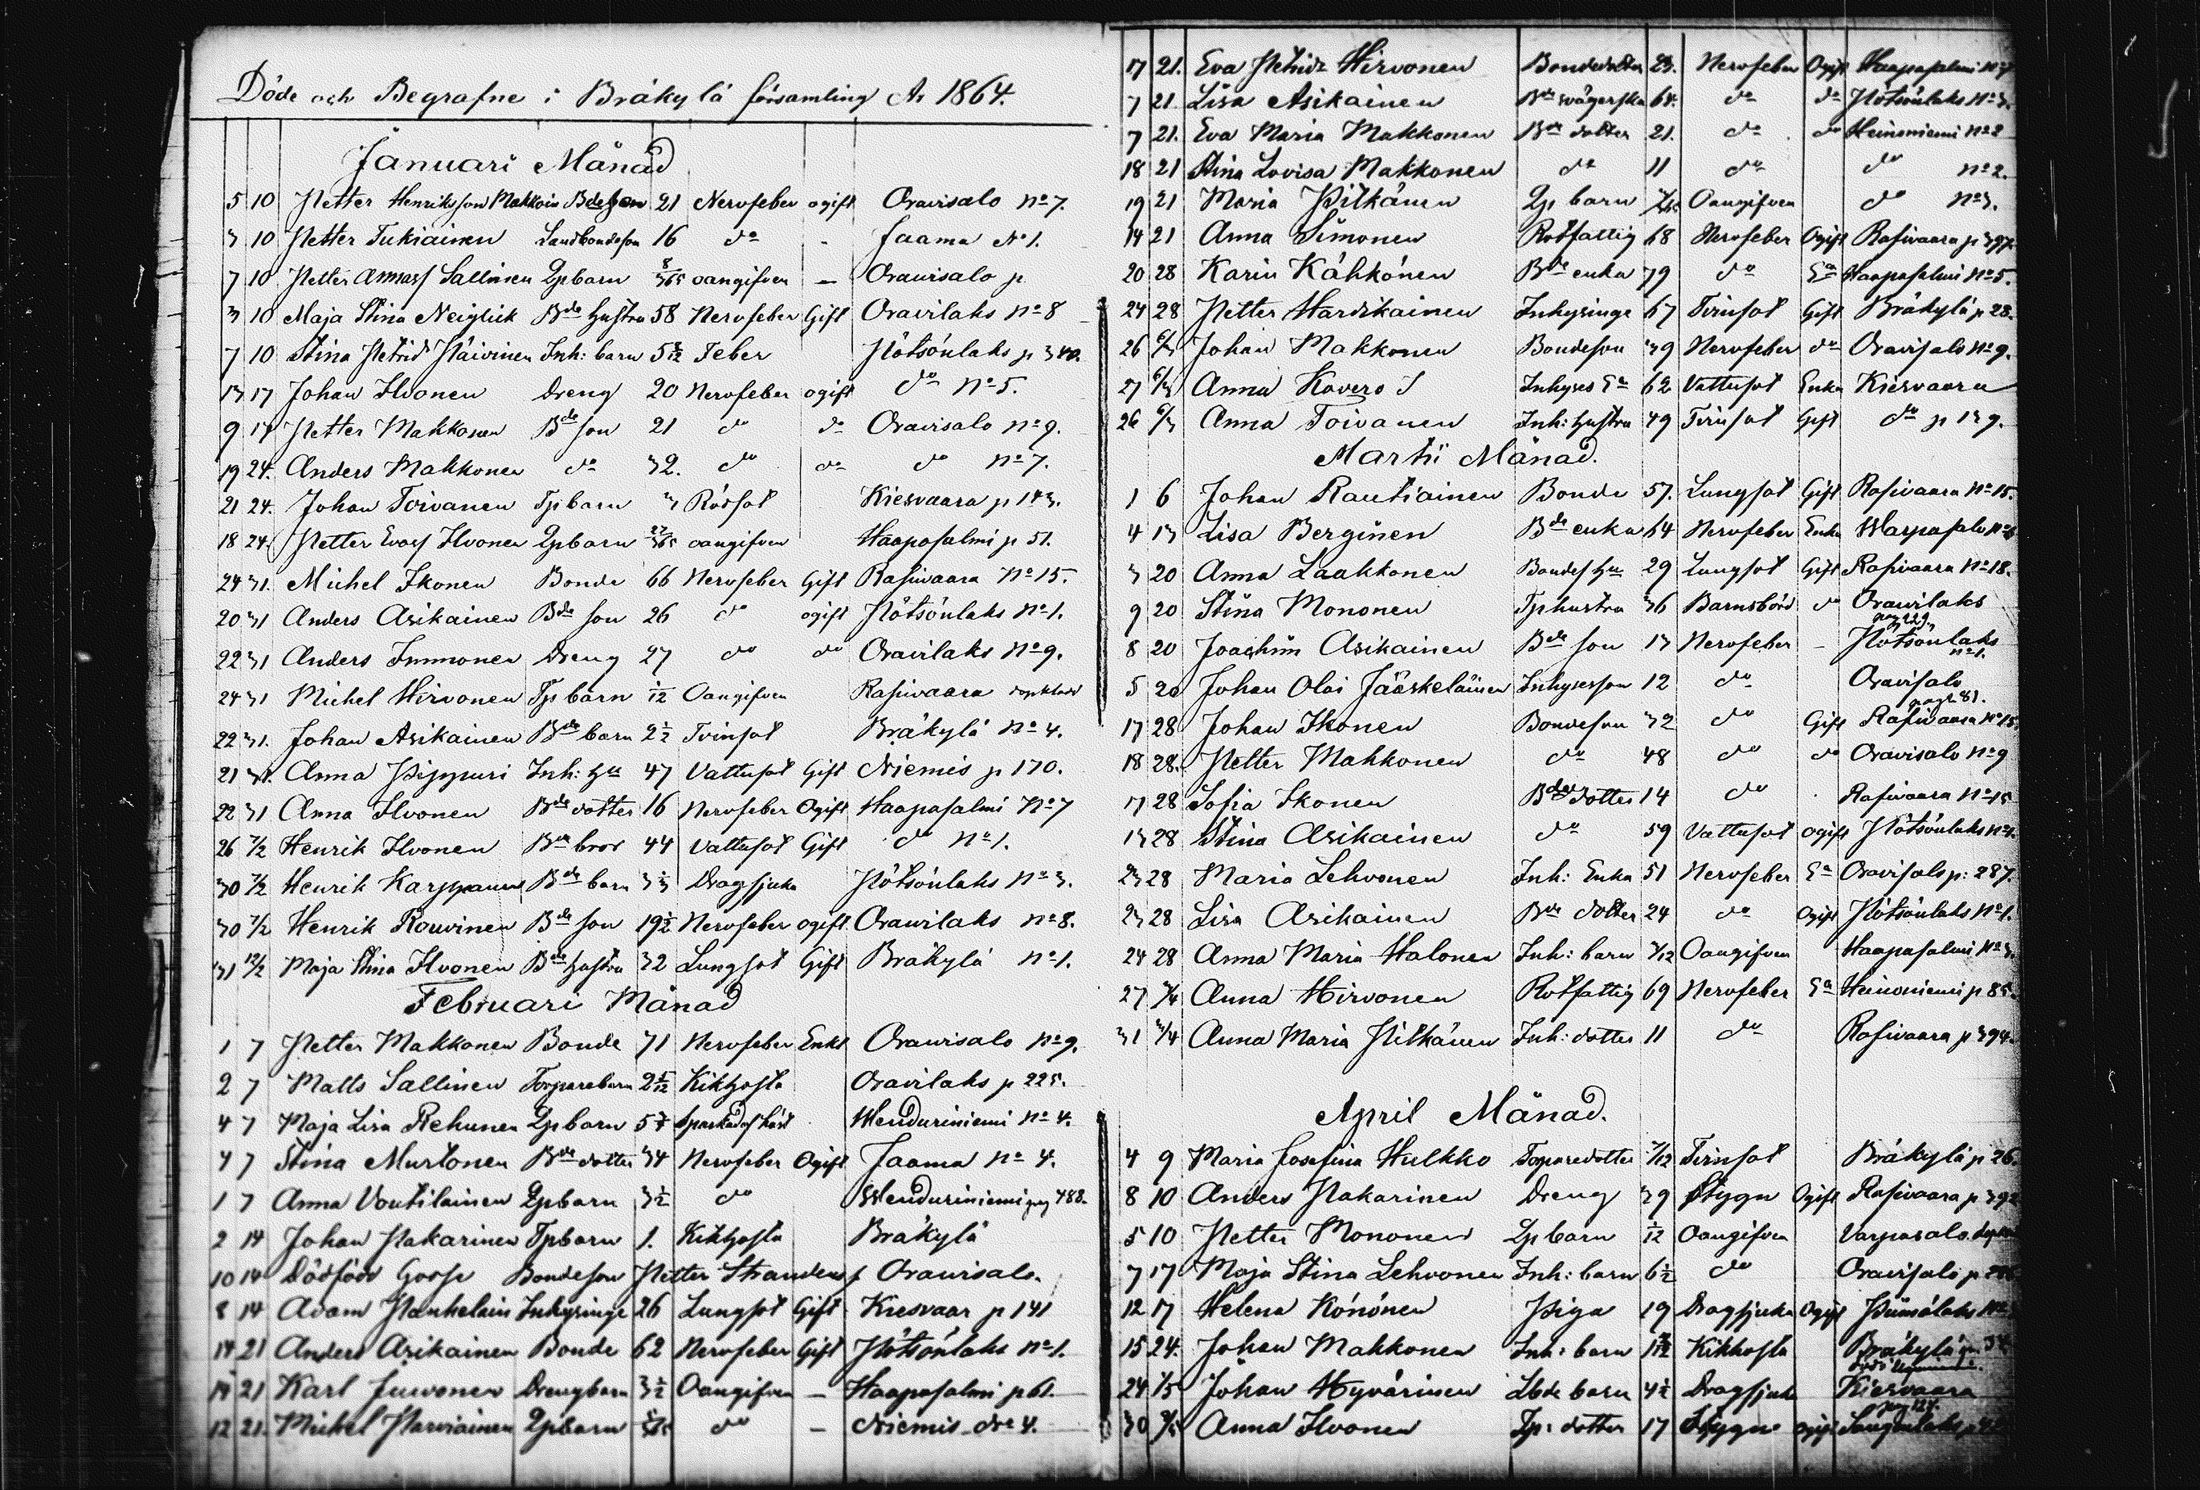 Döde och Begrafne i Bräkylä församling År 1864.
Januari Månad
5 10 Petter Henriksson Makkoin Bdeson 21 Nervfeber ogift Oravisalo No 7.
3 10 Petter Tukiainen Landbondeson 16 do - Jaama No 1.
7 10 Petter Sallinen Lpbarn 8/365 oangifven — Oravisalo p
3 10 Maja Stina Neiglick Bde hustru 58 Nervfeber Gift Oravilaks No 8
7 10 Stina Petrid Päivinen Inh: barn 5 Feber Pötsönlaks p 340.
13 17 Johan Ilvonen Dreng 20 Nervfeber ogift do No 5.
9 17 Petter Makkonen Bde son 21 do do Oravisalo No 9.
19 24. Anders Makkonen do 32. do do do No 7.
21 24. Johan Toivanen Tpbarn 3 Rödsot Kiesvaara p 143.
18 24. Petter Evasf Ilvonen Lpbarn 27/365 oangifven Haapasalmi p 51.
24 31. Michel Ikonen Bonde 66 Nervfeber Gift Rasivaara No 15.
20 31 Anders Asikainen Bde son 26 do ogift Pötsönlaks No 1.
22 31 Anders Immonen Dreng 27 do do Oravilaks No 9.
24 31 Michel Hirvonen Tp barn 1/12 Oangifven Rasivaara
22 31. Johan Asikainen Bde barn 2 1/2 Tvinsot Bräkylä No 4.
21 31. Anna Pippuri Inh: hu 47 Vattusot Gift Niemis p 170.
22 31 Anna Ilvonen Bde dotter 16 Nervfeber Ogift Haapasalmi No 7
26 7/2 Henrik Ilvonen Bde bror 44 Vattusot Gift do No 1.
30 7/2 Henrik Karppanen Bde barn 3 Dragsjuka Pötsönlaks No 3.
30 7/2 Henrik Rouvinen Bde son 19 1/2 Nervfeber ogift Oravilaks No 8.
31 12/2 Maja Stina Ilvonen Bde hustru 32 Lungsot Gift Bräkylä No 1.
Februari Månad
1 7 Petter Makkonen Bonde 71 Nervfeber Enkl Oravisalo No 9.
2 7 Matts Sallinen Torparebarn 2 Kikhosta Oravilaks p 225.
4 7 Maja Lisa Rehunen Lpbarn 5 sparkad af häst Henduriniemi No 4.
4 7 Stina Murtonen Bde dotter 34 Nervfeber Ogift Jaama No 4.
1 7 Anna Voutilainen Lpbarn 3 1/2 do Henduriniemi pag 488.
2 14 Johan Pakarinen Tpbarn 1. Kikhosta Bräkylä
10 14 Dödfödd Gosse Bondeson Petter Oravisalo.
8 14 Adam Inhysinge 26 Lungsot Gift Kiesvaar p 141
14 21 Anders Asikainen Bonde 62 Nervfeber Gift Pötsönlaks No 1.
14 21 Karl Juvonen Drengbarn 3 1/2 Oangifven — Haapasalmi p 61.
12 21. Michel Parviainen Lpbarn do — Niemis No 4.
17 21. Eva Petrid: Hirvonen Bondedotter 23. Nervfeber Ogift Haapasalmi No 7
7 21 Lisa Asikainen Bde svägerska 64. do do Pötsönlaks No 3.
7 21. Eva Maria Makkonen Bde dotter 21. do do Heinoniemi No 2
18 21 Stina Lovisa Makkonen do 11 do do No 2.
19 21 Maria Pitkänen Lp barn Oangifven do No 3.
14 21 Anna Simonen Rotfattig 68 Nervfeber Ogift Rasivaara p 397.
20 28 Karin Kähkönen Bde enka 79 do Ea Haapasalmi No 5.
24 28 Petter Hardikainen Inhysinge 67 Tvinsot Gift Bräkylä p 28.
26 6/3 Johan Makkonen Bondeson 39 Nervfeber do Oravisalo No 9.
27 6/3 Anna Kovero Inhyses Ea 62 Vattusot Enka Kiesvaara
26 6/3 Anna Toivanen Inh: hustru 49 Tvinsot Gift do p 139.
Martii Månad.
1 6 Johan Rautiainen Bonde 57. Lungsot Gift Rasivaara No 15.
4 13 Lisa Berginen Bde enka 64 Nervfeber Enka Warpasalo No
3 20 Anna Laakkonen Bondes hu 29 Lungsot Gift Rasivaara No 18.
9 20 Stina Mononen Tphustru 36 Barnsbörd do Oravilaks
pag 229.
8 20 Joachim Asikainen Bde son 13 Nervfeber — Pötsönlaks
No 1.
5 20 Johan Olai Jääskeläinen Inhysesson 12 do Oravisalo
pag 281.
17 28 Johan Ikonen Bondeson 32 do Gift Rasivaara No 15
18 28. Petter Makkonen do 48 do do Oravisalo No 9
17 28 Sofia Ikonen Bde dotter 14 do Rasivaara No 15
13 28 Stina Asikainen do 59 Vattusot ogift Pötsönlaks No 1.
23 28 Maria Lehvonen Inh: Enka 51 Nervfeber Ea Oravisalo p: 287.
23 28 Lisa Asikainen Bde dotter 24 do Ogift Pötsönlaks No 1.
24 28 Anna Maria Halonen Inh: barn Oangifven Haapasalmi No 3.
27 3/4 Anna Hirvonen Rotfattig 69 Nervfeber Ea Heinoniemi p 85.
31 3/4 Anna Maria Pitkänen Inh: dotter 11 do Rasivaara p 394.
April Månad.
4 9 Maria Josefina Hulkko Torparedotter Tvinsot Bräkylä p 26.
8 10 Anders Pakarinen Dreng 39 Stygn Ogift Rasivaara p 392
5 10 Petter Mononen Lp barn 1/12 Oangifven Varpasalo
7 17 Maja Stina Lehvonen Inh: barn 6 1/2 do Oravisalo p
12 17 Helena Könönen Piga 19 Dragsjuka Ogift
15 24. Johan Makkonen Inh: barn Kikhosta Bräkylä
24 1/5 Johan Hyvärinen Lbde barn 4 1/2 Dragsjuka Kiesvaara
pag 127.
30 Anna Ilvonen Tp: dotter 17 Stygn ogift